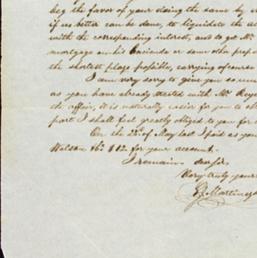 beg the favor of your doing the same by
if no better can be done, to liquidate the
with the corresponding interest, and to get Mr
mortgage on his Hacienda or some other
the shortest place possible, carrying of course
I am very sorry to give you so
as you have already treated with Mr
the affair, it is naturally easier for you to
part I shall feel greatly obliged to you for
On the 22d of May last I paid as you
Watson $112 for your account.
I remain dear Sir
Very truly yours
Martinez